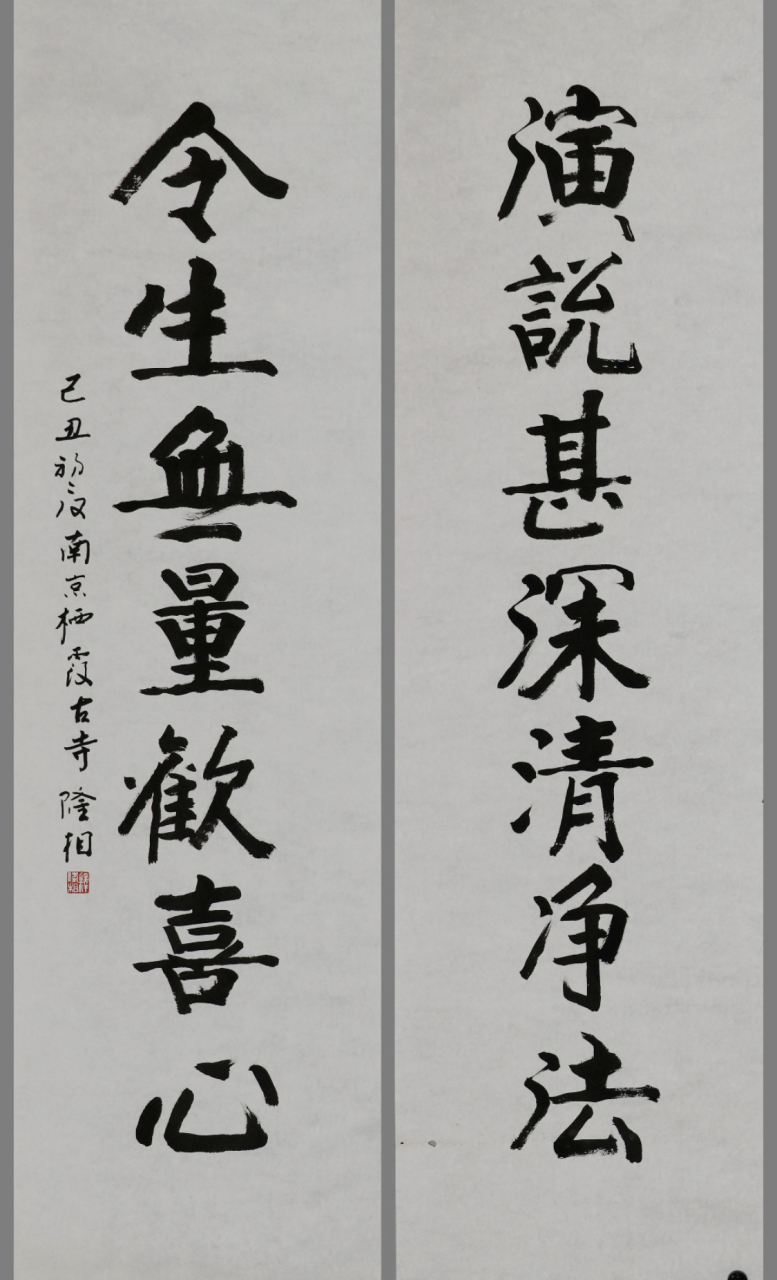 演說甚深清净法
令生無量歡喜心
己丑初夏南京栖霞古寺隆相